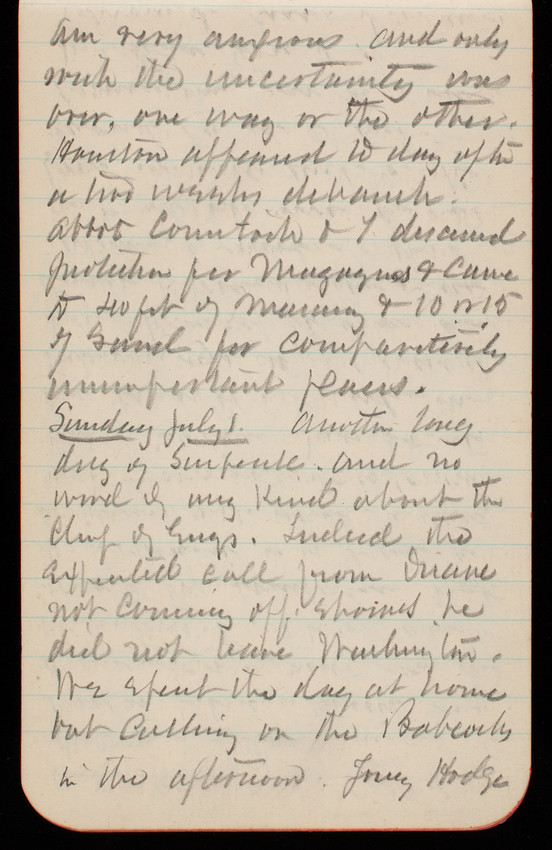 am very anxious and only
wish the uncertainty was
over, one way or the other.
Houston appeared to day after
a two weeks debauch.
Abbot Comstock & I discussed
protection for Magazines & Came
to 40 feet of Masonry & 10 or 15
of Sand for comparitively
unimportant places.
Sunday July 1. Another long
day of Suspense. and no
word of any Kind about the
Chief of Engs. Indeed the
expected call from Duane
not coming off. Shows he
did not leave Washington.
We spent the day at home
but Calling on the Babcocks
in the afternoon. Hodge